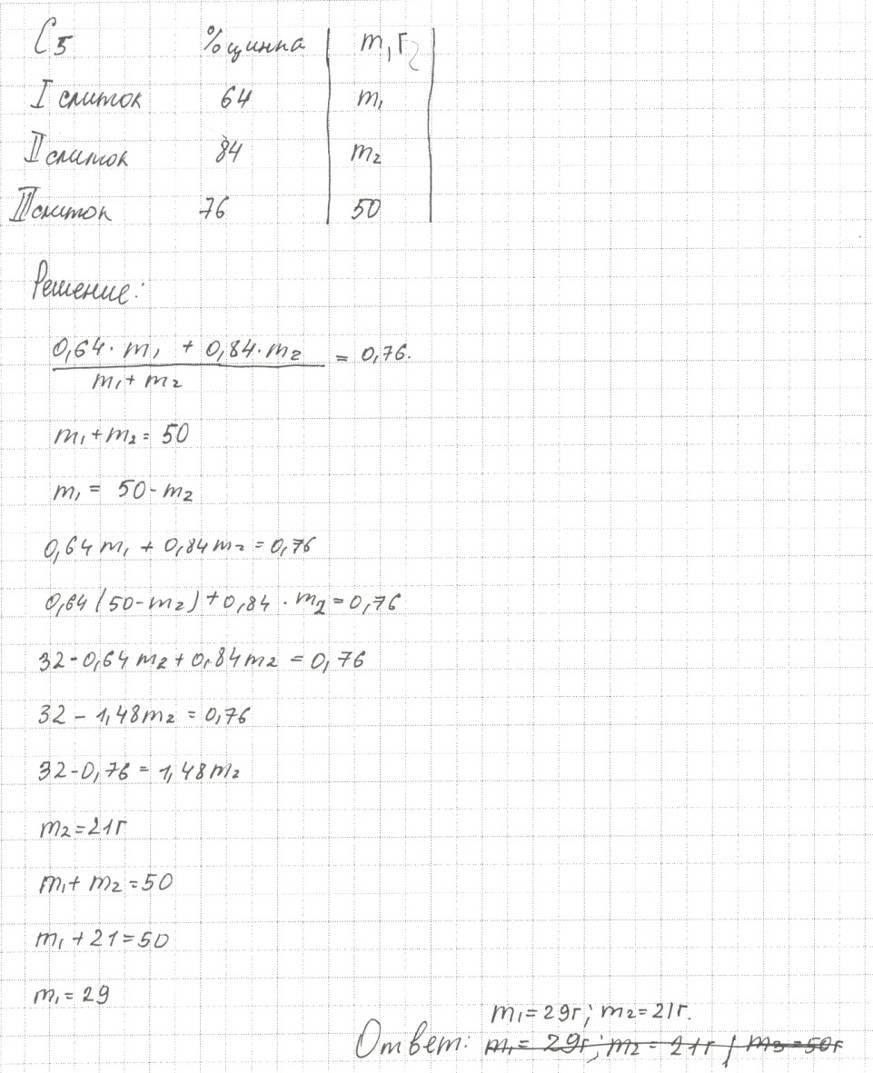 С5 % цинка m,г
I слиток 64 m₁
II слиток 84 m₂
III слиток 76 50
Решение:
0,64·m₁ + 0,84·m₂ / m₁+m₂ = 0,76.
m₁+m₂=50
m₁= 50-m₂
0,64m₁ + 0,84m₂=0,76
0,64(50-m₂)+0,84·m₂=0,76
32-0,64m₂+0,84m₂ = 0,76
32-1,48m₂=0,76
32-0,76=1,48m₂
m₂=21г
m₁+m₂=50
m₁+21=50
m₁=29
m₁=29г; m₂=21г.
Ответ: m₁= 29г; m₂= 21г, m₃=50г